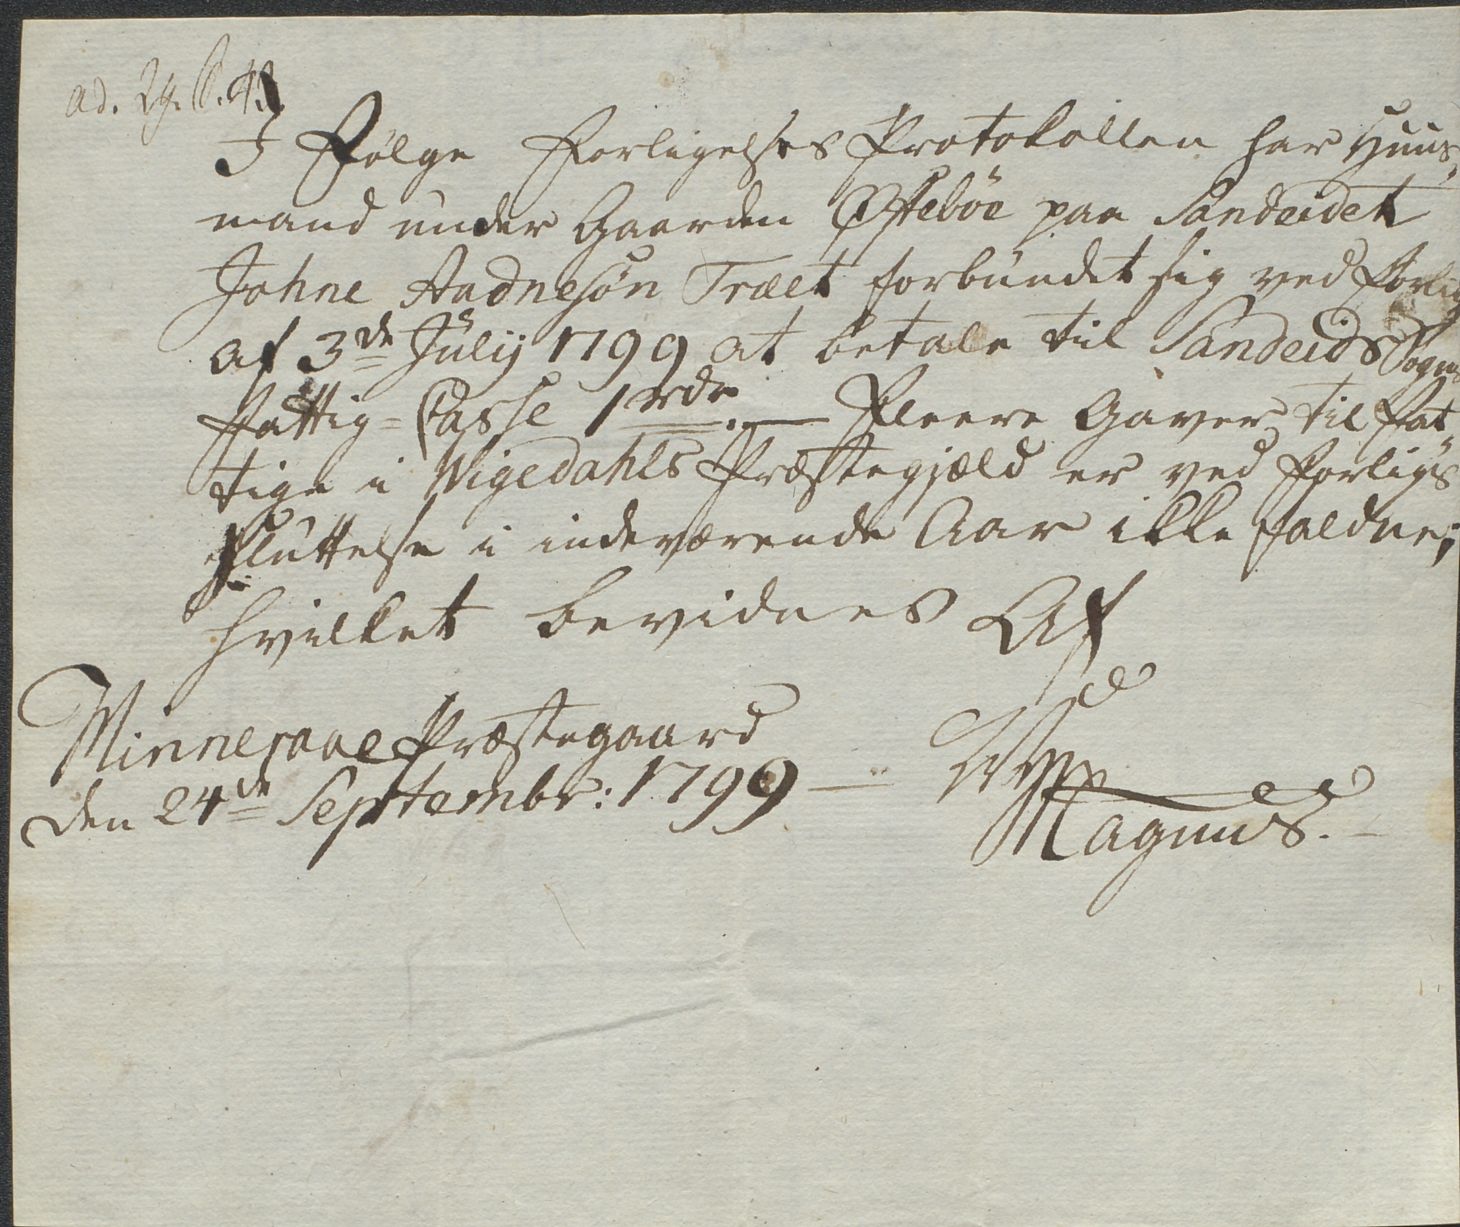 ad.
I Følge Forligelses Protokollen har Huus,
mand under Gaarden Østebøe paa Sandeidet
Johne Aadnesøn Træet forbundet sig ved Forlig
af 3de Julij 1799 at betale til Sandeids Sogns
Fattig-Casse 1 rdr. — Fleere Gaver til Fat
tige i Wigedahls Præstegjæld er ved Forligs
Sluttelse i indeværende Aar ikke faldne;
hvilket bevidnes Af
Minneraae Præstegaard
den 24de Septembr: 1799 —
Magnus.